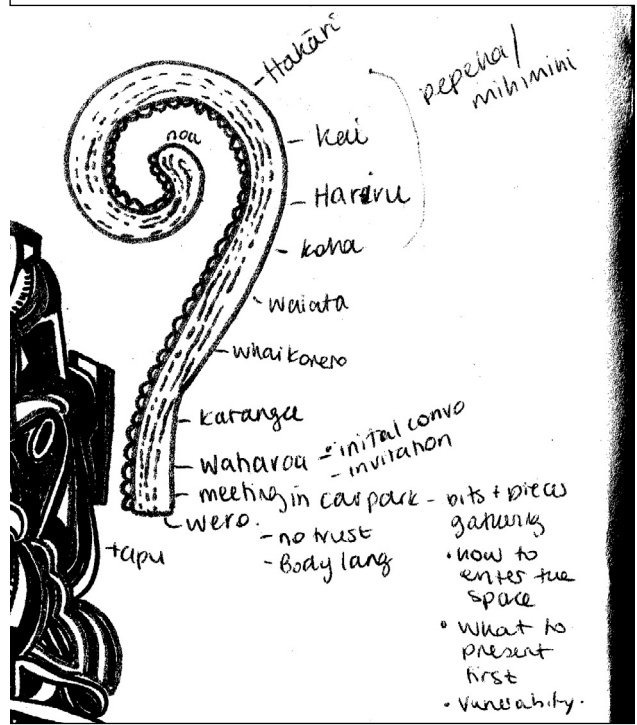 - Hakāri
pepeha/
mihimihi
noa
- kai
- Hariru
- koha
- waiata
- whaikorero
- karanga
- waharoa - inital convo
- invitation
- meeting in carpark - bits + pieces
gathering
- wero.
- no trust
- Body lang
tapu
• how to
enter the
space
• What to
present
first
• Vunerability.